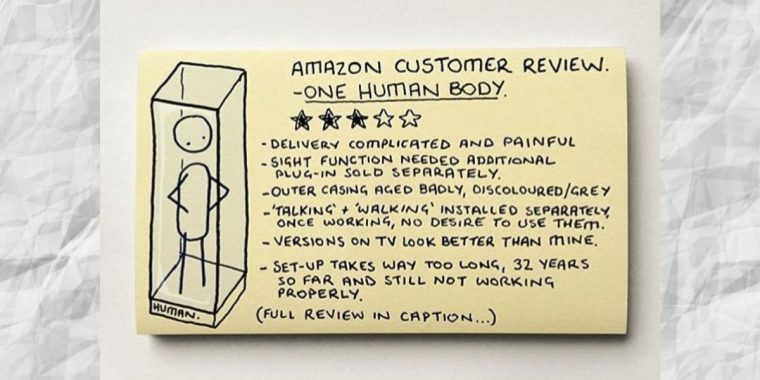 AMAZON CUSTOMER REVIEW.
-ONE HUMAN BODY.
- DELIVERY COMPLICATED AND PAINFUL
- SIGHT FUNCTION NEEDED ADDITIONAL
PLUG-IN SOLD SEPARATELY.
- OUTER CASING AGED BADLY, DISCOLOURED/GREY
- 'TALKING' + 'WALKING' INSTALLED SEPARATELY,
ONCE WORKING, NO DESIRE TO USE THEM.
- VERSIONS ON TV LOOK BETTER THAN MINE.
- SET-UP TAKES WAY TOO LONG, 32 YEARS
SO FAR AND STILL NOT WORKING
PROPERLY.
(FULL REVIEW IN CAPTION...)
HUMAN.